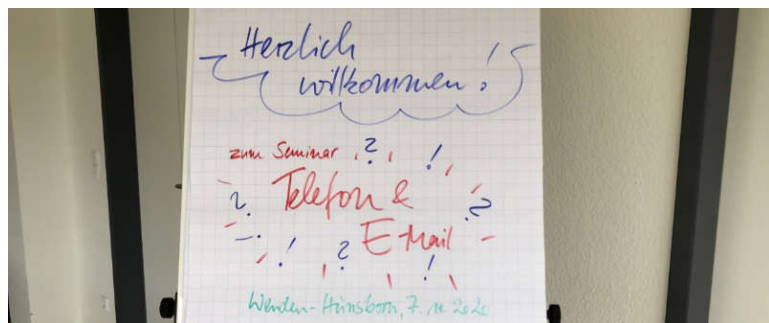 Herzlich
willkommen!
zum Seminar
Telefon &
E-Mail
Wenden-Hünsborn, 7. 11. 2020